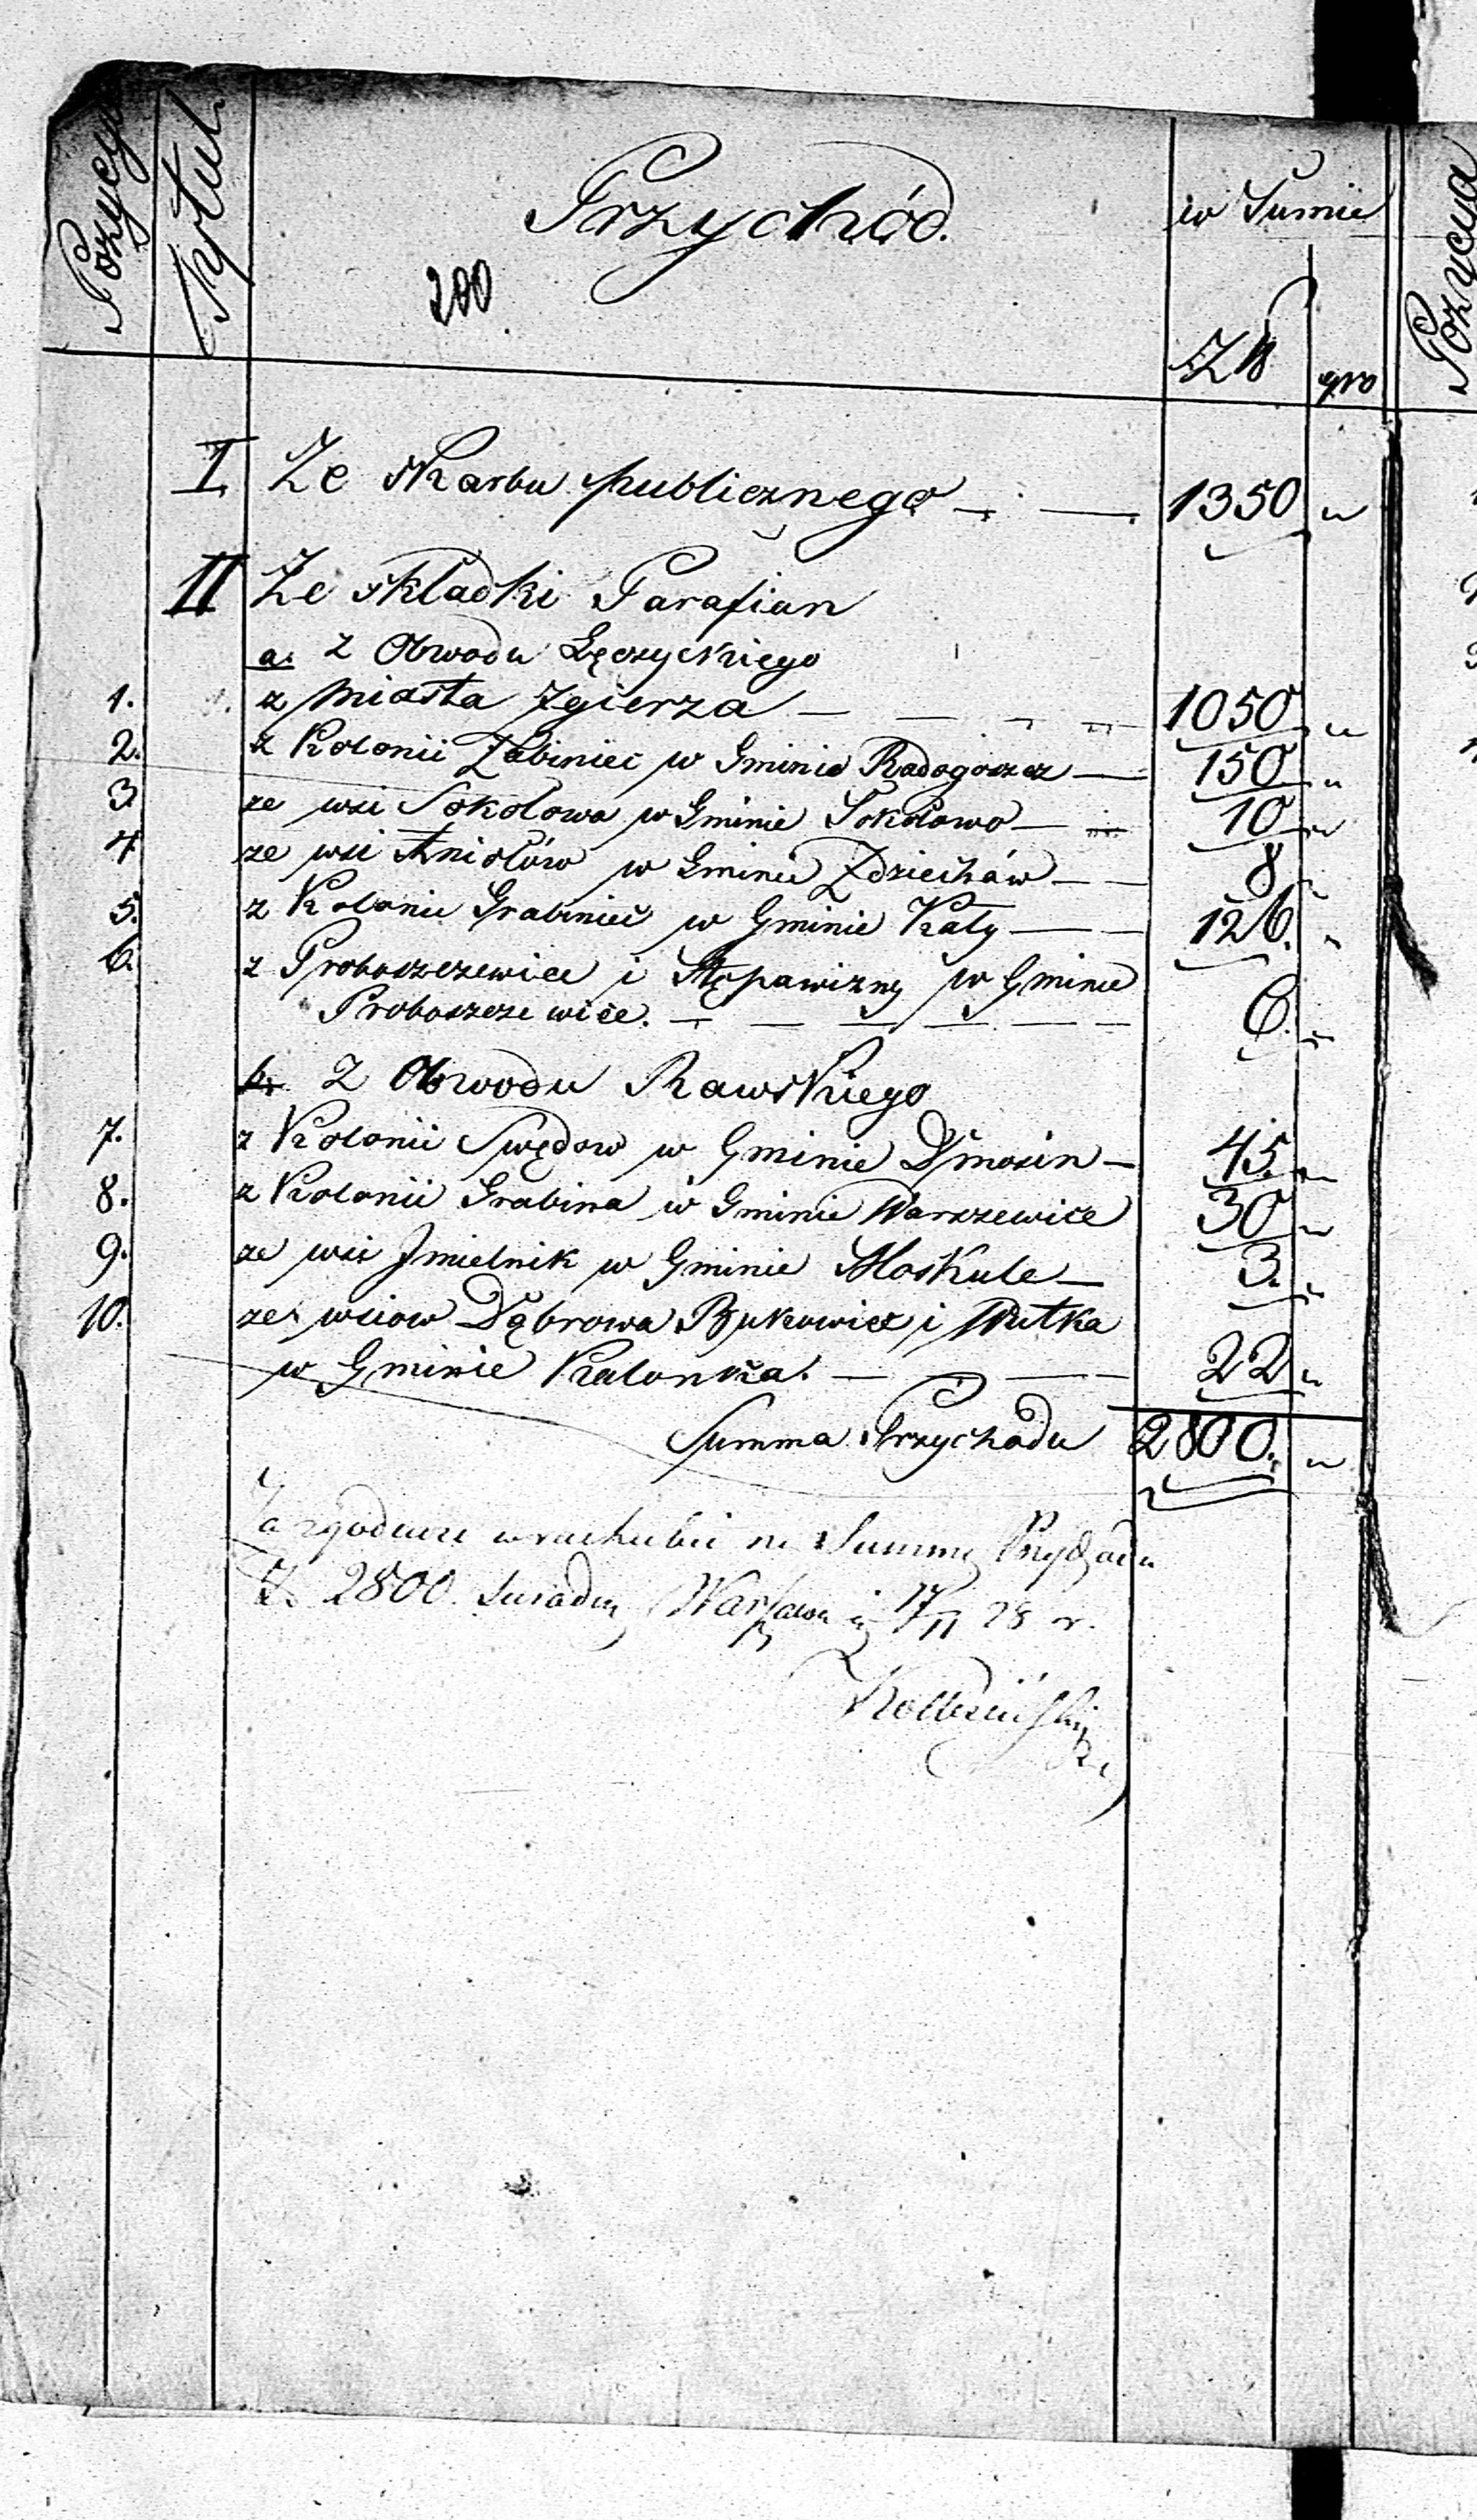 Pozycya Tytuł Przychód. w Sumie
200
Złł gro
I. Ze skarbu publicznego — — 1350 "
II Ze składki Parafian
a. z Obwodu Łęczyckiego
1. z miasta Zgierza — — — — 1050 "
2. z Kolonii Żabiniec w Gminie Radogoszcz — 150 "
3 ze wsi Sokołowa w Gminie Sokołowo — — 10 "
4 ze wsi Aniołów w Gminie Zdziechów — — 8 "
5. z Kolonii Grabiniec w Gminie Kały — — 126. "
6. z Proboszczewice i Stępawizny w Gminie
Proboszczewice. — — — — — — 6. "
b. z Obwodu Rawskiego
7. z Kolonii Swędow w Gminie Dmosin — 45. "
8. z Kolonii Grabina w Gminie Warszewice 30 "
9. ze wsi Jmielnik w Gminie Moskule — 3. "
10. ze wsiow Dąbrowa Bukowiec i Wutka
w Gminie Kalonka. — — — — 22 "
Summa Przychodu 2800. "
Za zgodność w rachubie na Summę Przychodu
Zł. 2800. Warszawa 17/11 28 r.
Pozycya